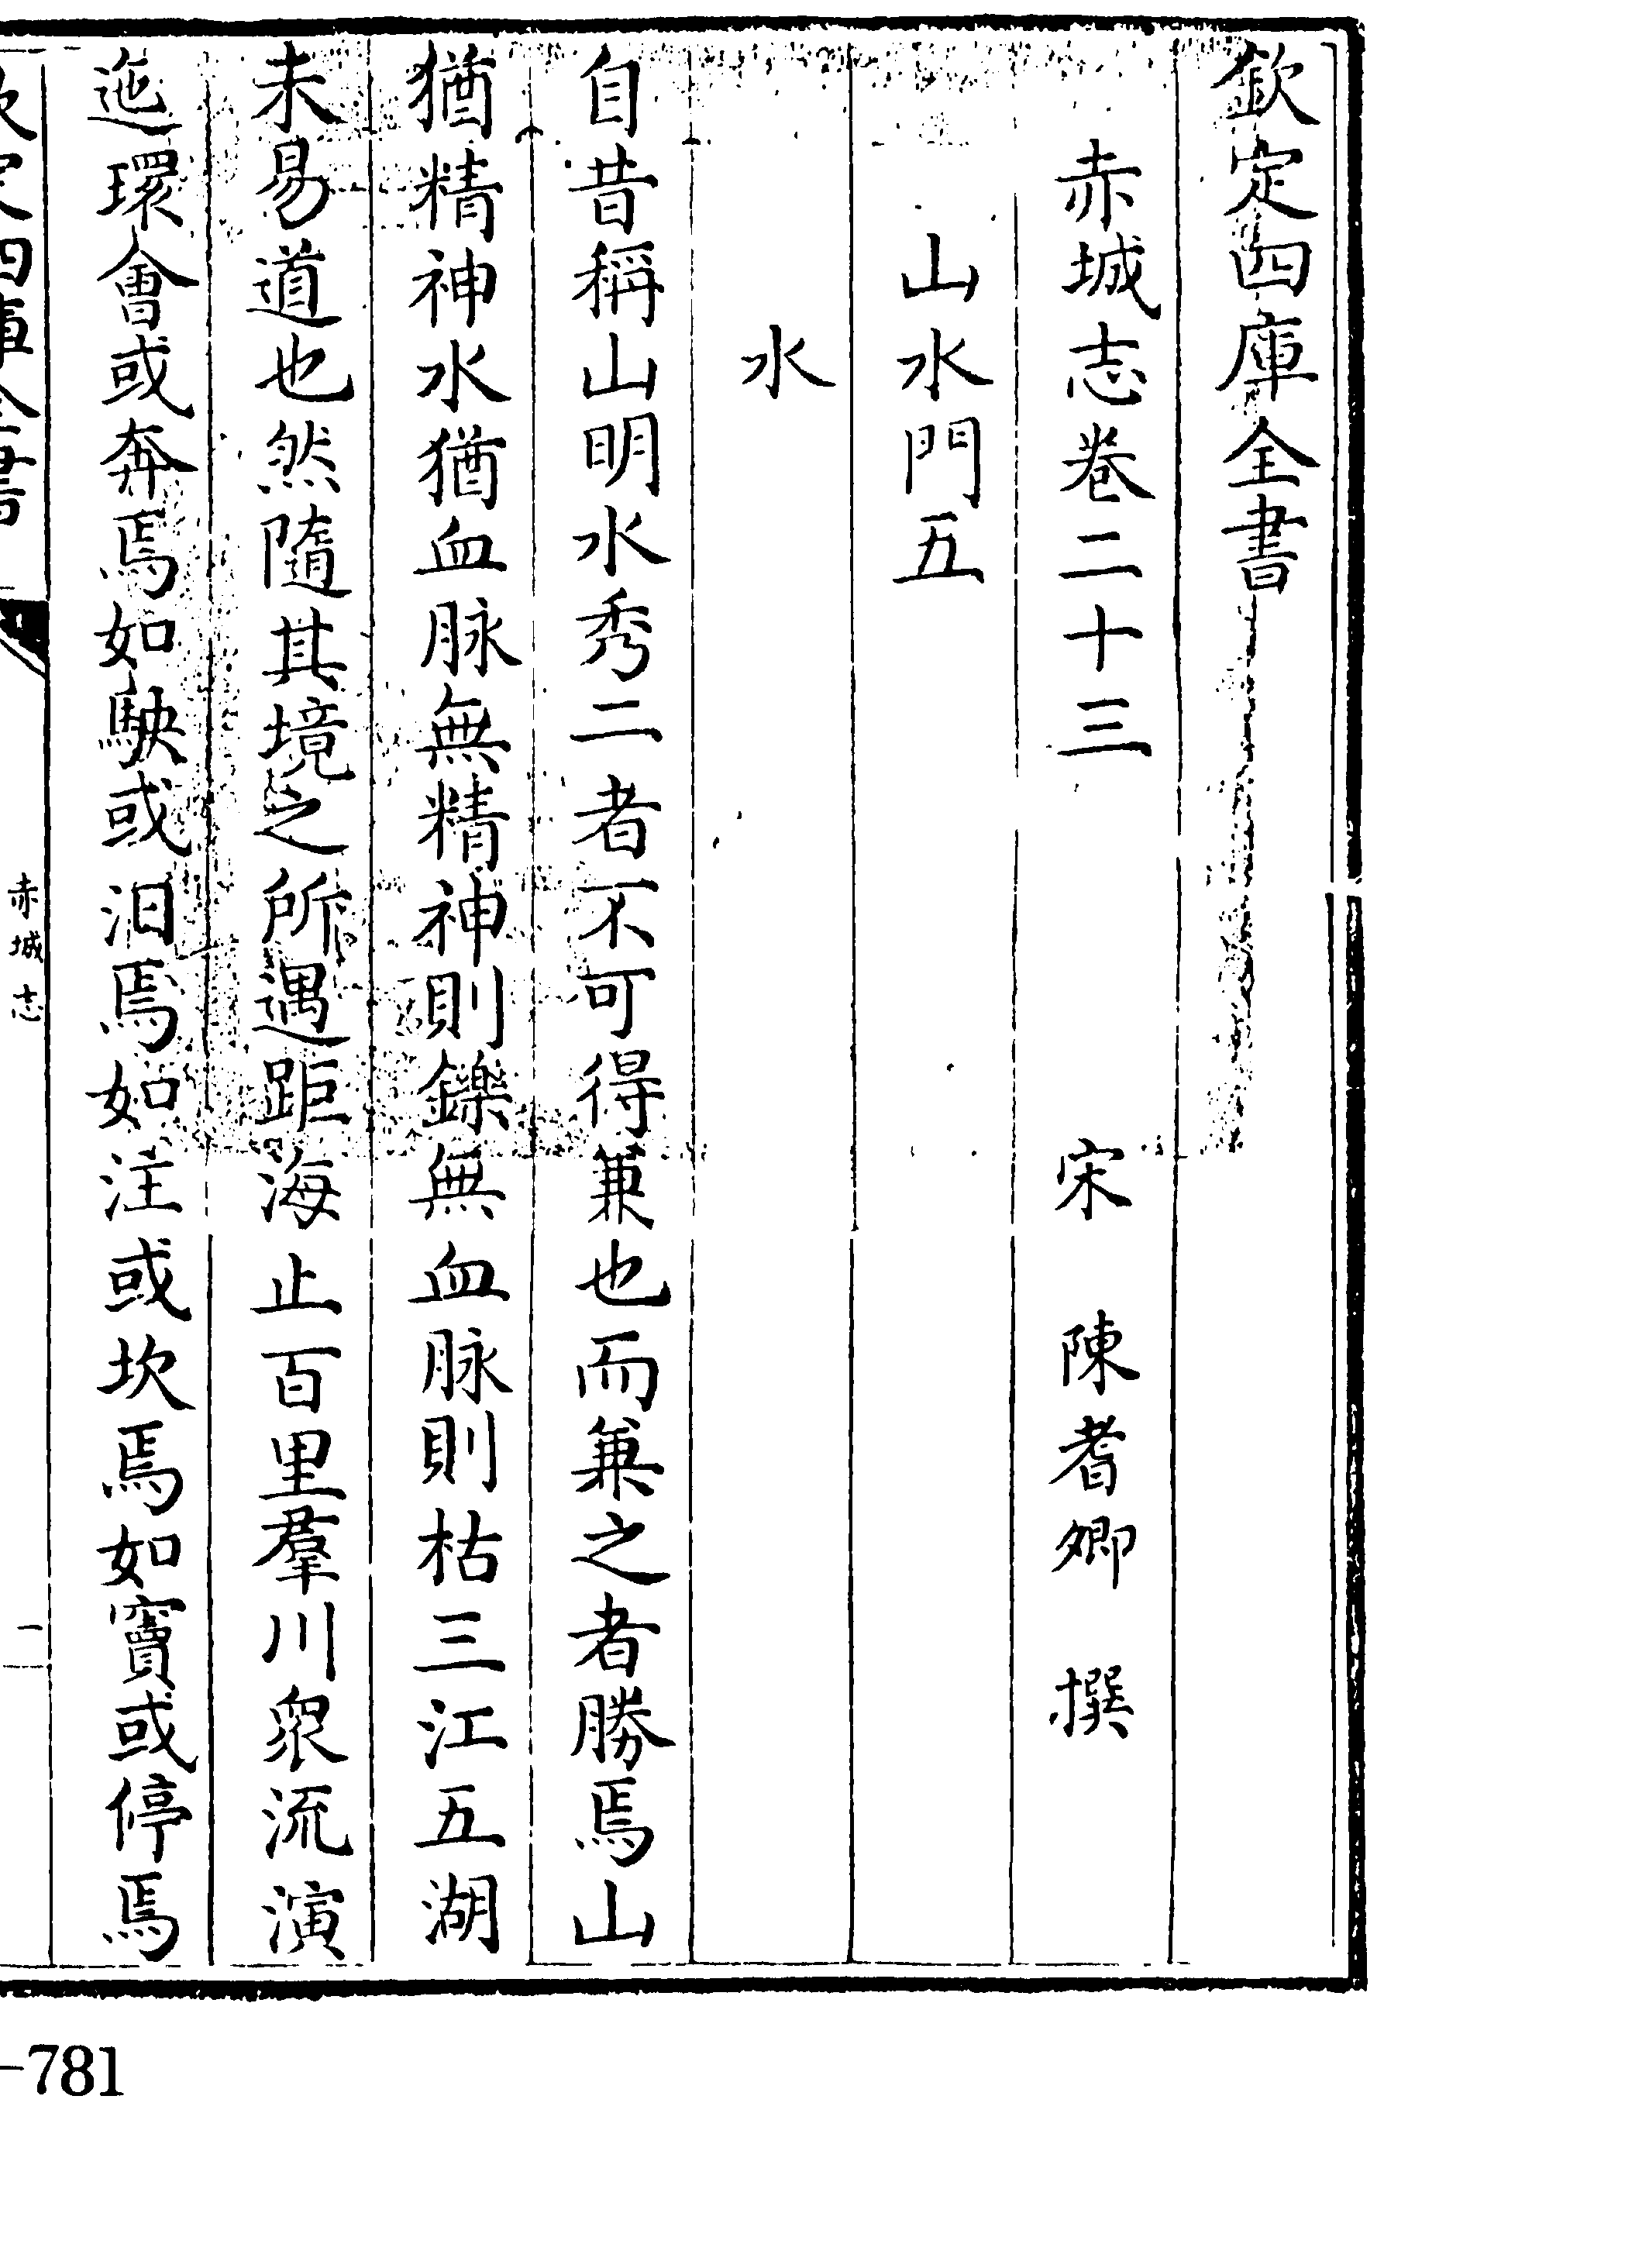 欽定四庫全書
赤城志卷二十三 宋 陳耆卿 撰
山水門五
水
自昔稱山明水秀二者不可得兼也而兼之者勝焉山
猶精神水猶血脉無精神則鑠無血脉則枯三江五湖
未易道也然隨其境之所遇距海止百里羣川衆流演
迤環會或奔焉如駚或汨焉如注或坎焉如竇或停焉
赤城志
一
-781